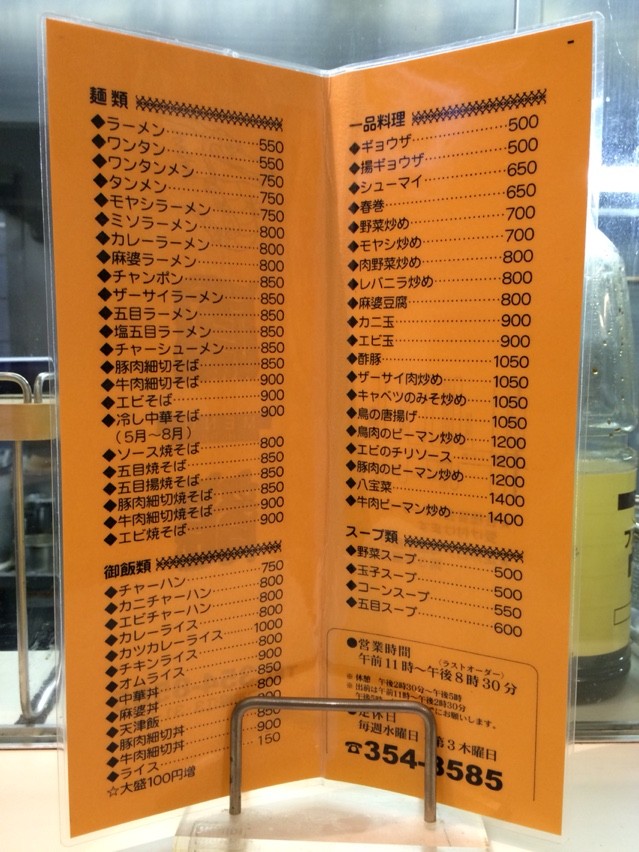 麺類
◆ラーメン…550
◆ワンタン…550
◆ワンタンメン…750
◆タンメン…750
◆モヤシラーメン…800
◆ミソラーメン…800
◆カレーラーメン…800
◆麻婆ラーメン…850
◆チャンポン…850
◆ザーサイラーメン…850
◆五目ラーメン…850
◆塩五目ラーメン…850
◆チャーシューメン…850
◆豚肉細切そば…850
◆牛肉細切そば…900
◆エビそば…900
◆冷し中華そば…900
（5月〜8月）
◆ソース焼そば…800
◆五目焼そば…850
◆五目揚焼そば…850
◆豚肉細切焼そば…850
◆牛肉細切焼そば…900
◆エビ焼そば…900
御飯類
◆チャーハン…750
◆カニチャーハン…800
◆エビチャーハン…800
◆カレーライス…800
◆カツカレーライス…1000
◆チキンライス…800
◆オムライス…900
◆中華丼…850
◆麻婆丼…800
◆天津飯…800
◆豚肉細切丼…850
◆牛肉細切丼…900
◆ライス…150
☆大盛100円増
一品料理
◆ギョウザ…500
◆揚ギョウザ…500
◆シューマイ…650
◆春巻…650
◆野菜炒め…700
◆モヤシ炒め…700
◆肉野菜炒め…800
◆レバニラ炒め…800
◆麻婆豆腐…800
◆カニ玉…900
◆エビ玉…900
◆酢豚…1050
◆ザーサイ肉炒め…1050
◆キャベツのみそ炒め…1050
◆鳥の唐揚げ…1050
◆鳥肉のピーマン炒め…1200
◆エビのチリソース…1200
◆豚肉のピーマン炒め…1200
◆八宝菜…1400
◆牛肉ピーマン炒め…1400
スープ類
◆野菜スープ…500
◆玉子スープ…500
◆コーンスープ…550
◆五目スープ…600
●営業時間
（ラストオーダー）
午前11時〜午後8時30分
※休憩 午後2時30分〜午後5時
※出前は午前11時〜午後2時30分
にお願いします。
●定休日
毎週水曜日 第3木曜日
☎354-8585